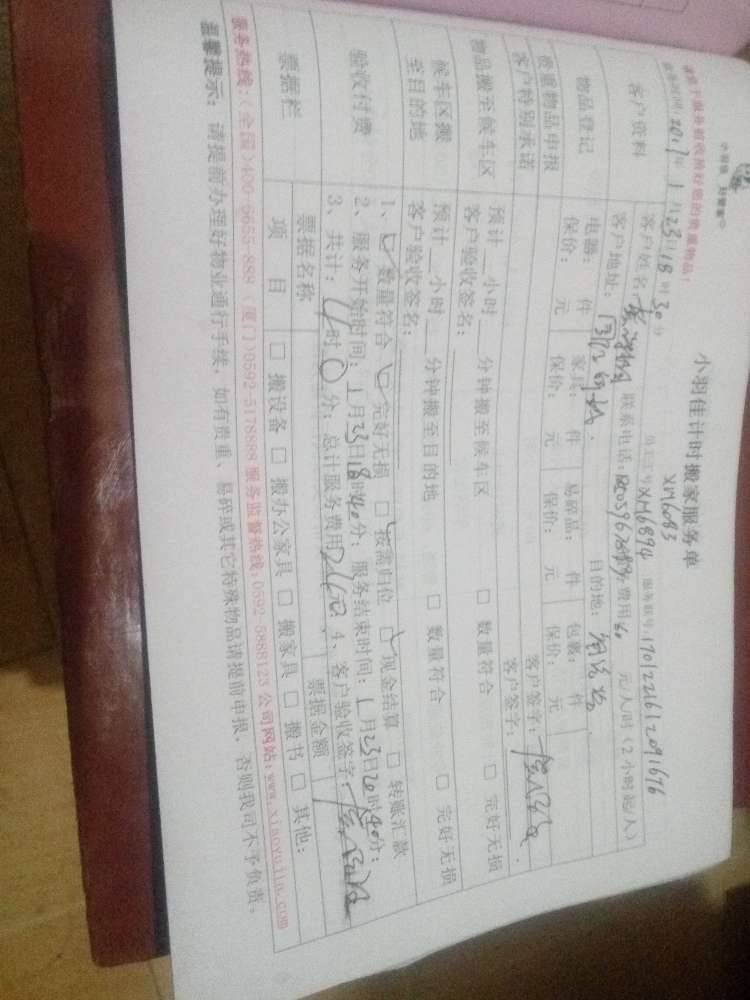 小羽佳计时搬家服务单
XM6083
员工工号:XM6894 服务账号:1701221612091676
2017年1月23日18时30分
客户资料
客户姓名:
联系电话:
费用60元/人时(2小时起/人)
客户地址:
目的地:
物品登记
电器: 件 家具: 件 易碎品: 件 包裹: 件
保价: 元 保价: 元 保价: 元 保价: 元
贵重物品申报
客户签字:
客户特别承诺
客户签字:
物品搬至候车区
预计__小时__分钟搬至候车区 □ 数量符合 □ 完好无损
客户验收签名:
候车区搬至目的地
预计__小时__分钟搬至目的地 □ 数量符合 □ 完好无损
客户验收签名:
验收付费
1、□ 数量符合 □ 完好无损 □ 按需归位 □ 现金结算 □ 转账汇款
2、服务开始时间:1月23日18时40分; 服务结束时间:1月23日20时40分;
3、共计:4时0分; 总计服务费用 元; 4、客户验收签字:
票据栏
票据名称 票据金额
项目 □ 搬设备 □ 搬办公家具 □ 搬家具 □ 搬书 □ 其他:
服务热线:(全国)400-6655-888 (厦门)0592-5178889 服务监督热线:0592-5888123 公司网站:www.xiaoyujia.com
温馨提示: 请提前办理好物业通行手续, 如有贵重、易碎或其它特殊物品请提前申报, 否则我司不予负责。